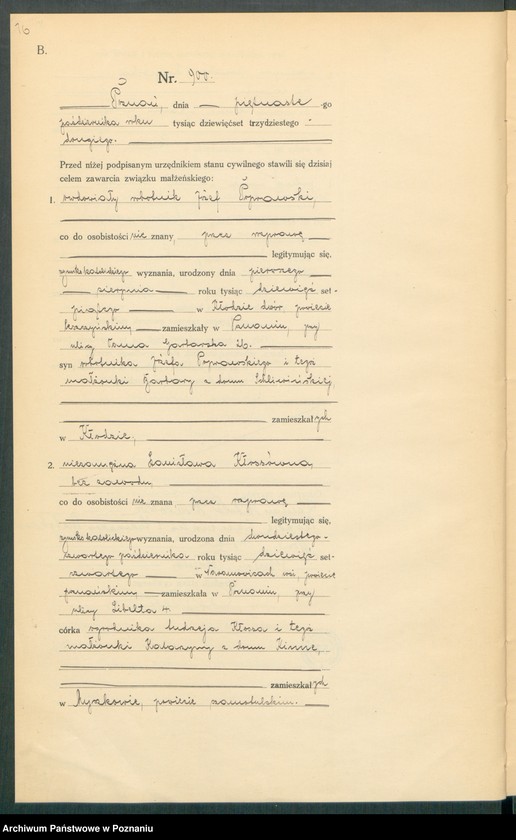 76
B.
Nr. 900.
Poznań, dnia piętnaste go
października roku tysiąc dziewięćset trzydziestego
drugiego.
Przed niżej podpisanym urzędnikiem stanu cywilnego stawili się dzisiaj
celem zawarcia związku małżeńskiego:
1. robotnik Józef Poprawski,
co do osobistości nie znany, przez rozprawę
legitymując się,
rzymskokatolickiego wyznania, urodzony dnia pierwszego
sierpnia roku tysiąc dziewięć set-
piątego w Kłodzie dwór, powiecie
leszczyńskim zamieszkały w Poznaniu, przy
ulicy Garbarska
syn robotnika Józefa Poprawskiego i tegoż
małżonki Barbary z domu
zamieszkałych
w Kłodzie,
2. niezamężna Kłosówna,
bez zawodu
co do osobistości nie znana przez rozprawę
legitymując się,
rzymskokatolickiego wyznania, urodzona dnia dwudziestego-
czwartego października roku tysiąc dziewięć set-
czwartego w wsi, powiecie
poznańskim zamieszkała w Poznaniu, przy
ulicy Libelta
córka ogrodnika Kłosa i tegoż
małżonki Katarzyny z domu
zamieszkałych
w powiecie szamotulskim.
Archiwum Państwowe w Poznaniu